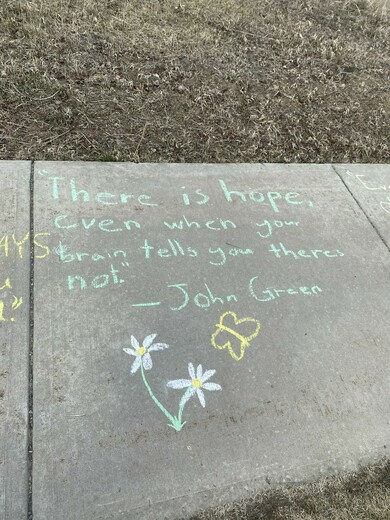 "There is hope,
even when your
brain tells you theres
not."
— John Green
AYS